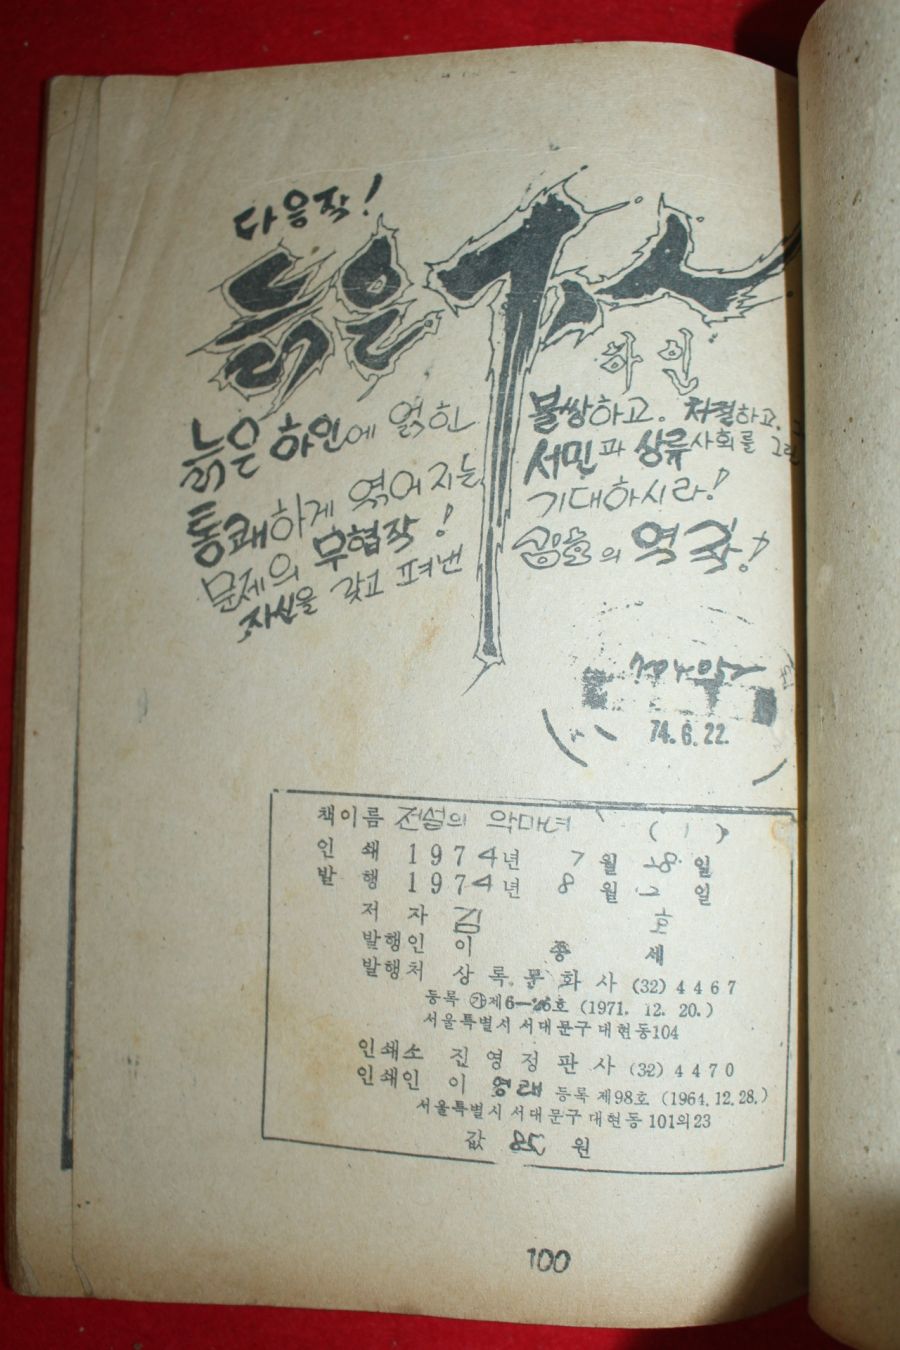 다음작!
늙은
하인
늙은 하인에 얽힌
통쾌하게 엮어지는
문제의 무협작!
자신을 갖고 펴낸
불쌍하고. 처절하고.
서민과 상류사회를
기대하시라!
의 역작!
74.6.22.
책이름 전설의 악마녀 (1)
인 쇄 1974년 7월 28일
발 행 1974년 8월 2일
저 자 김 호
발행인 이 종 세
발행처 상록문화사 (32) 4467
등록 ㉮제6-26호 (1971. 12. 20.)
서울특별시 서대문구 대현동104
인쇄소 진영정판사 (32) 4470
인쇄인 이 영래 등록 제98호 (1964.12.28.)
서울특별시 서대문구 대현동 101의23
값 85 원
100